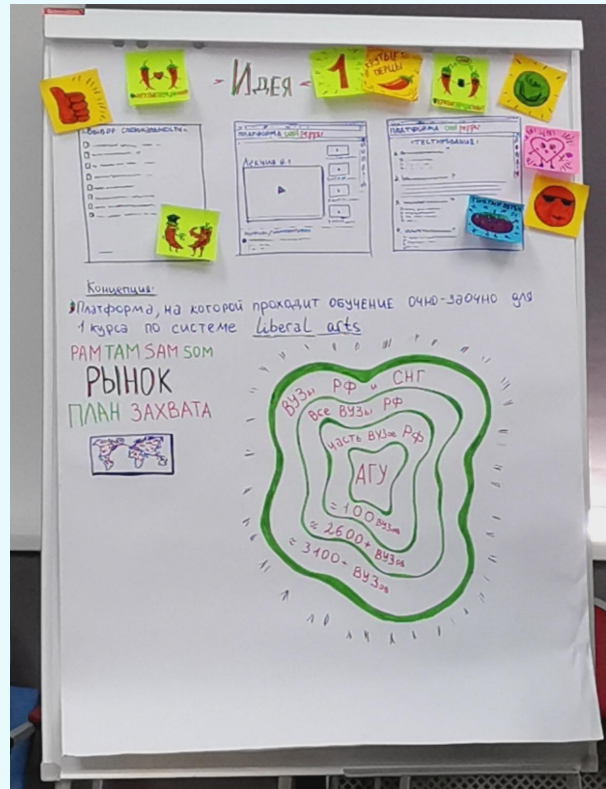 - Идея -
1
КРУТЫЕ ПЕРЦЫ
ВЫБОР СПЕЦИАЛЬНОСТИ
ПЛАТФОРМА cool pepper
Лекция № 1
ПЛАТФОРМА cool pepper
«ТЕСТИРОВАНИЕ»
Концепция:
Платформа, на которой проходит обучение очно-заочно для
1 курса по системе liberal arts
PAM TAM SAM SOM
РЫНОК
ПЛАН ЗАХВАТА
ВУЗы РФ и СНГ
все ВУЗы РФ
часть ВУЗов РФ
АГУ
≈ 100 вузов
≈ 2600+ ВУЗов
≈ 3100+ ВУЗов